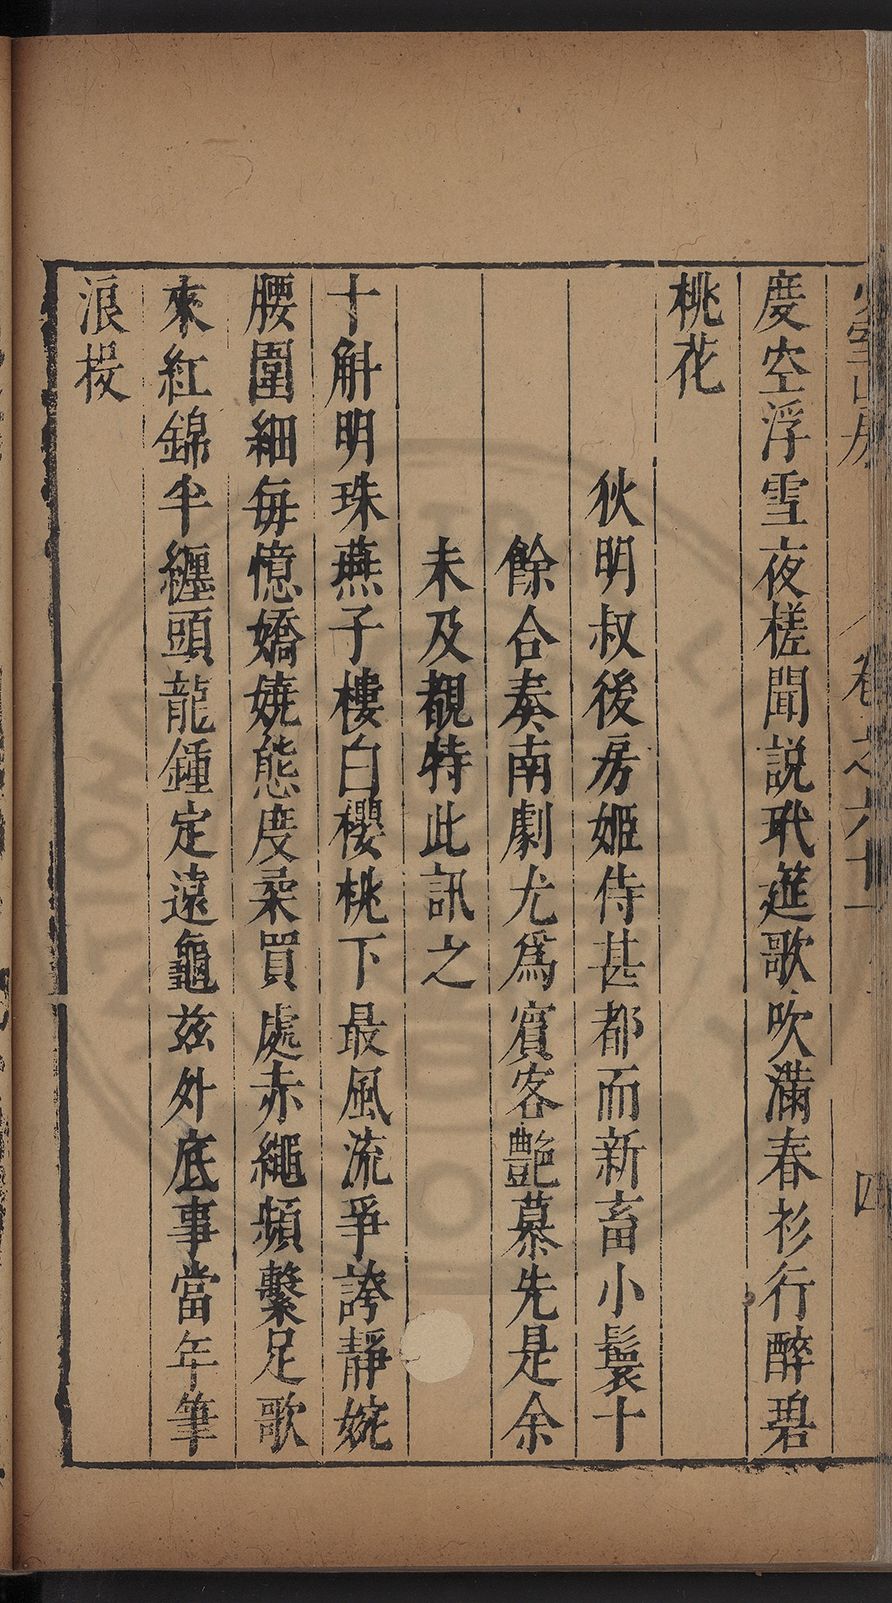 卷之六十一
四
度空浮雪夜槎聞説玳筵歌吹滿春衫行醉碧
桃花
狄明叔後房姬侍甚都而新畜小鬟十
餘合奏南劇尤爲賓客艷慕先是余
未及覩特此訊之
十斛明珠燕子樓白櫻桃下最風流爭誇靜婉
腰圍細每憶嬌嬈態度柔買處赤繩頻繫足歌
來紅錦半纏頭龍鍾定遠龜兹外底事當年筆
浪投